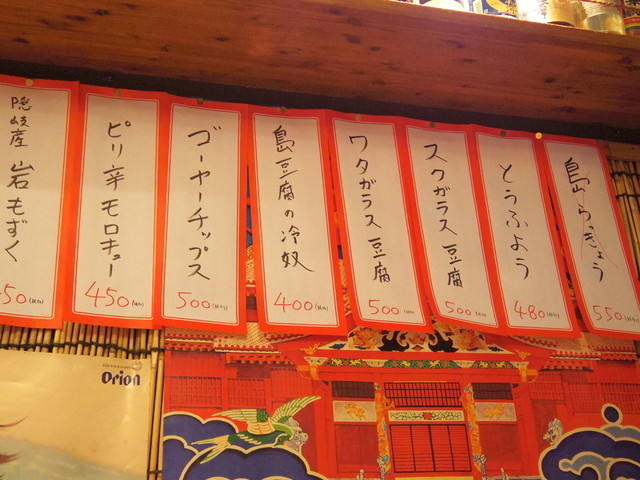 島らっきょう
550(税別)
とうふよう
480(税別)
スクガラス豆腐
500(税別)
ワタガラス豆腐
500(税別)
島豆腐の冷奴
400(税別)
ゴーヤーチップス
500(税別)
ピリ辛モロキュー
450(税別)
隠岐産 岩もずく
50(税別)
Orion